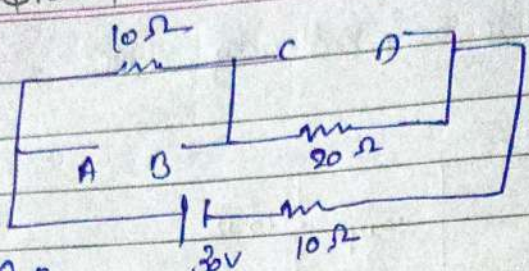 10 Ω
C D
A B 20 Ω
30V 10 Ω